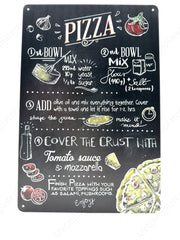 PIZZA
1 ST BOWL
MIX
water
yeast
sugar
2 nd BOWL
Mix
flour
Salt
3 ADD olive oil and mix everything together. Cover
a bowl and let it rise for
make it
4 COVER THE CRUST WITH
Tomato sauce
& mozzarella
FINISH PIZZA WITH YOUR
FAVORITE TOPPINGS SUCH
AS SALAMI, MUSHROOMS
enjoy